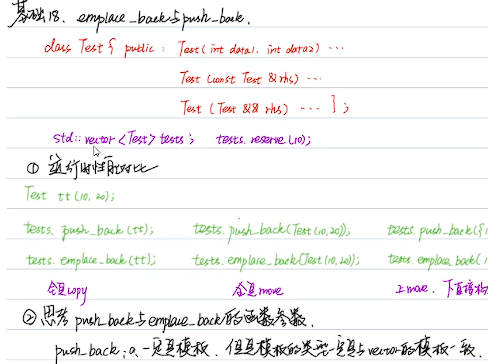 基础18. emplace_back与push_back.
class Test { public : Test(int data1. int data2) ...
Test (const Test &rhs) ...
Test (Test && rhs) ... } ;
std::vector <Test> tests ; tests.reserve(10);
① 运行时性能对比
Test tt (10, 20);
tests. push_back(tt); tests. push_back(Test(10,20)); tests. push_back({1
tests. emplace_back(tt); tests. emplace_back(Test(10,20)); tests. emplace_back(1
全是copy 全是move 上move. 下直接构
② 思考push_back与emplace_back的函数参数.
push_back: a. 一定是模板. 但是模板的类型一定是与vector的模板一致.